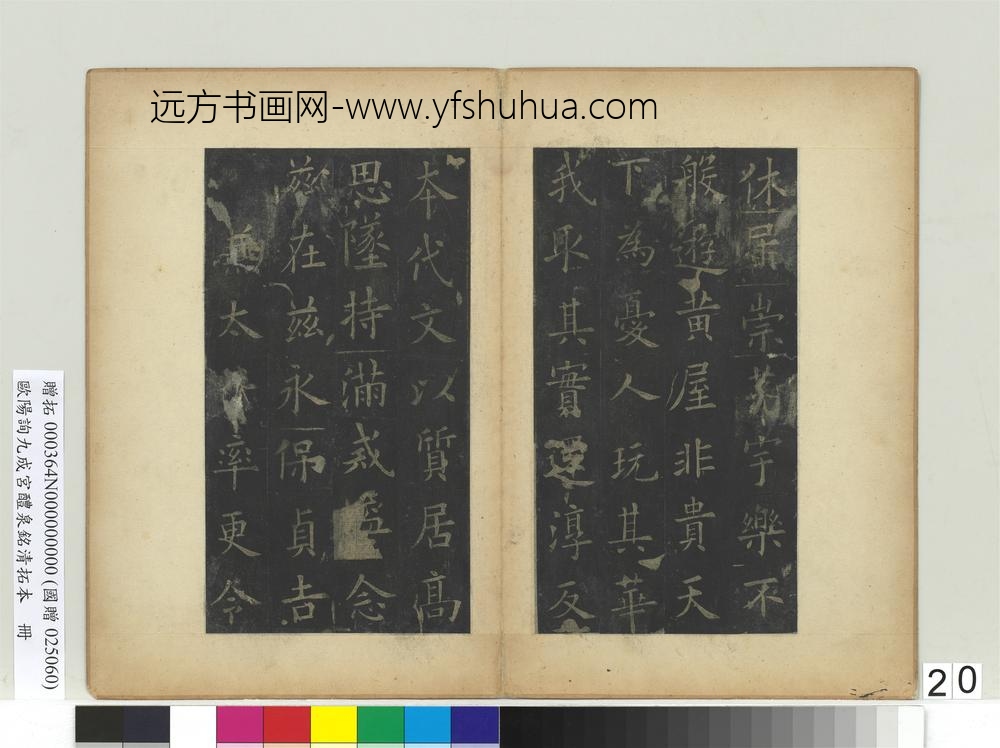 远方书画网-www.yfshuhua.com
休居崇茅宇樂不
般遊黃屋非貴天
下為憂人玩其華
我取其實還淳反
本代文以質居高
思墜持滿戒盈念
兹在兹永保貞吉
兼太率更令
贈拓 000364N000000000 (國贈 025060)
歐陽詢九成宮醴泉銘清拓本 冊
20